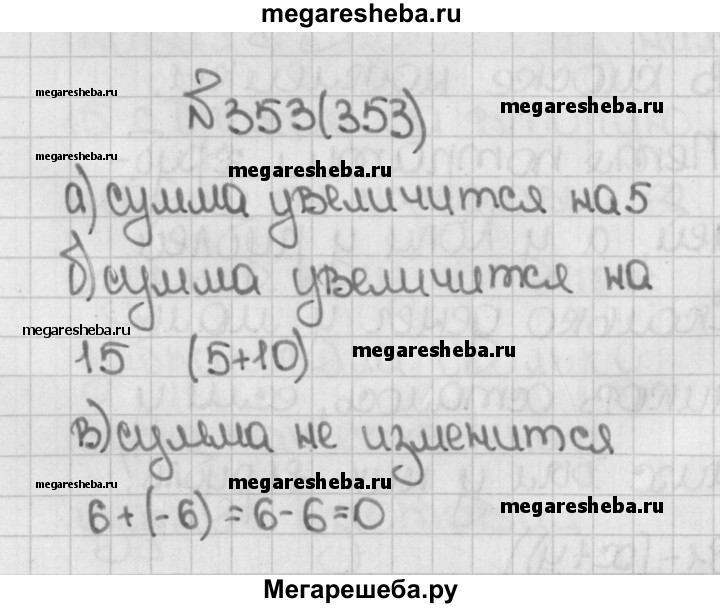 megaresheba.ru
megaresheba.ru
№353(353)
megaresheba.ru
megaresheba.ru
megaresheba.ru
а) сумма увеличится на 5
б) сумма увеличится на
megaresheba.ru
15 (5+10)
megaresheba.ru
в) сумма не изменится
megaresheba.ru
megaresheba.ru
megaresheba.ru
6+(-6)=6-6=0
Мегарешеба.ру